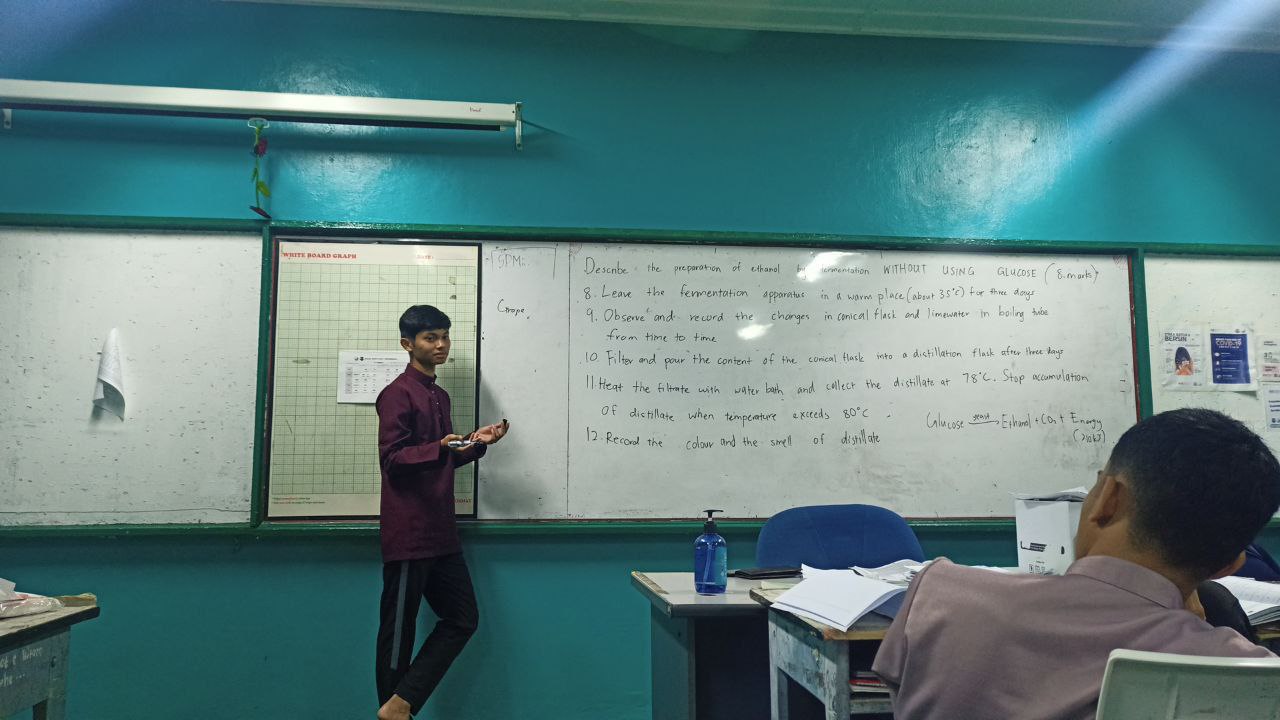 WHITE BOARD GRAPH
DATE:
SPM:
Grape.
Describe the preparation of ethanol by fermentation WITHOUT USING GLUCOSE (8 marks)
8. Leave the fermentation apparatus in a warm place (about 35°C) for three days
9. Observe and record the changes in conical flask and limewater in boiling tube
from time to time
10. Filter and pour the content of the conical flask into a distillation flask after three days
11. Heat the filtrate with water bath and collect the distillate at 78°C. Stop accumulation
of distillate when temperature exceeds 80°C.
Glucose yeast→ Ethanol + CO₂ + Energy
12. Record the colour and the smell of distillate
BERSIN
COVID-19